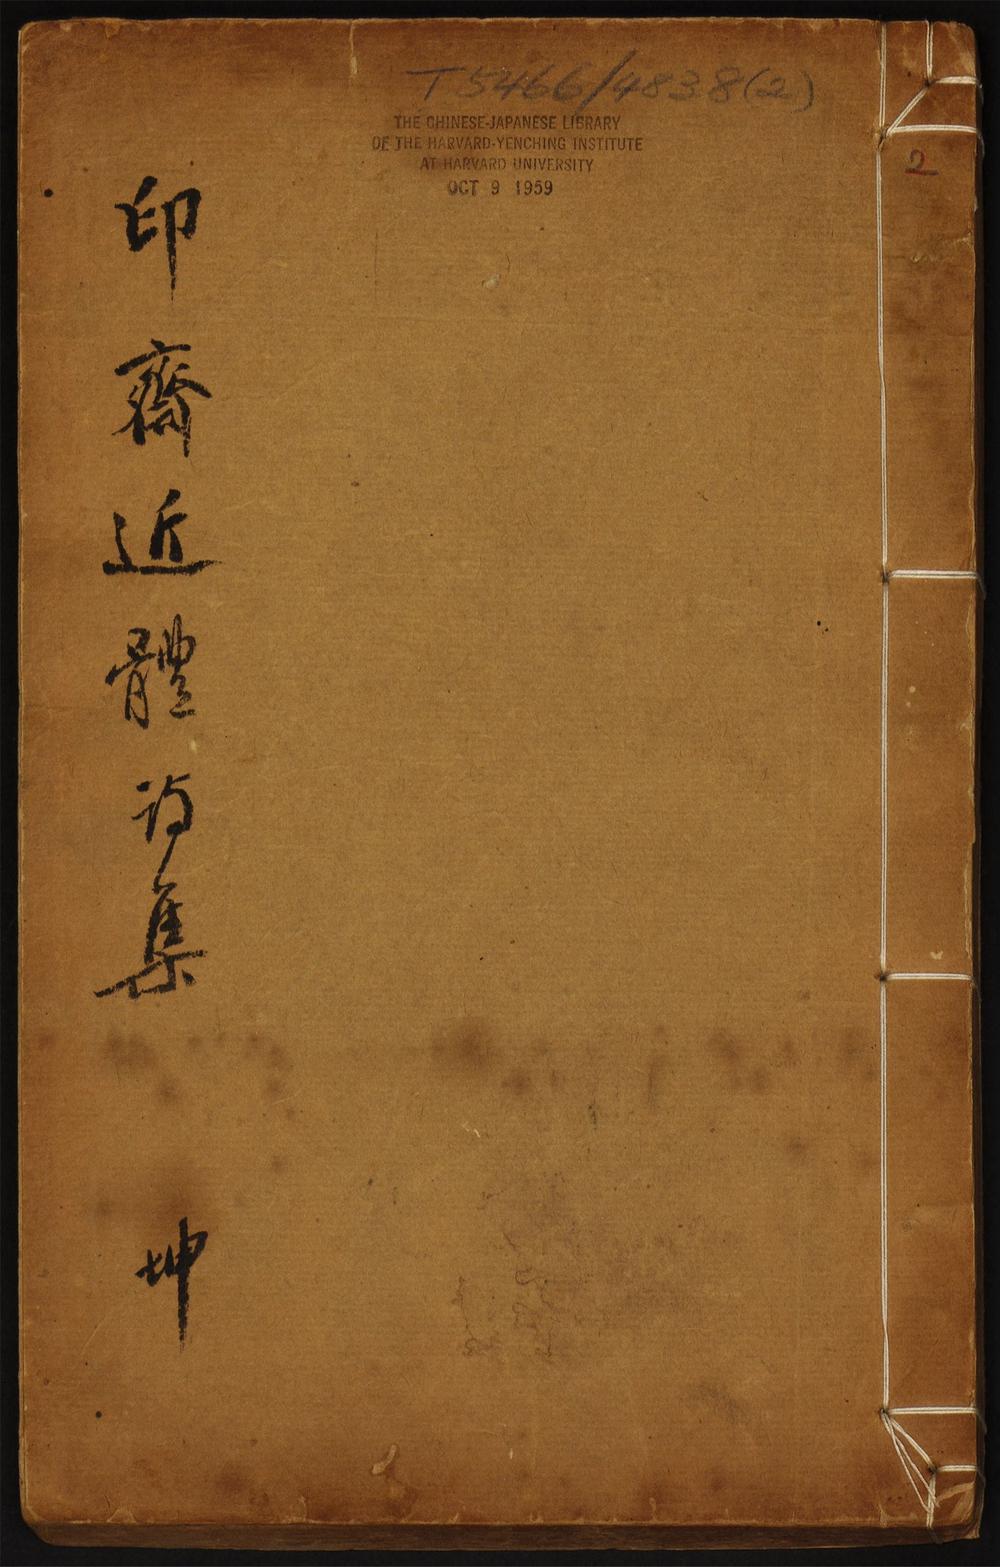 T5466/4838(2)
THE CHINESE-JAPANESE LIBRARY
OF THE HARVARD-YENCHING INSTITUTE
AT HARVARD UNIVERSITY
OCT 9 1959
2
印齋近體詩集
坤